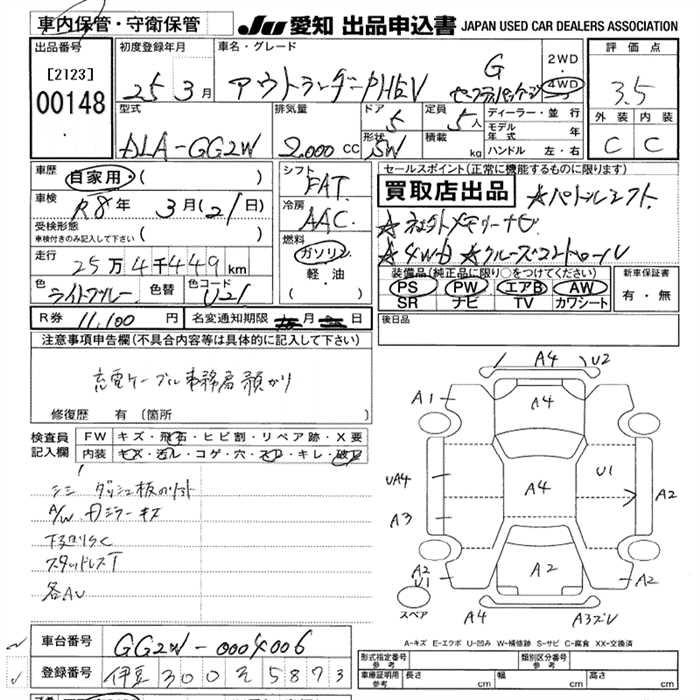 車内保管・守衛保管 JU 愛知 出品申込書 JAPAN USED CAR DEALERS ASSOCIATION
出品番号 初度登録年月 車名・グレード 2WD 評価点
[2123] 25 3月 アウトランダーPHEV G 4WD 3.5
00148 型式 排気量 ドア 5 定員 5人 ディーラー・並行 外装 内装
モデル年式 年
DLA-GG2W 2.000cc 形状 SW 積載 kg ハンドル 左・右 C C
車歴 自家用・( ) シフト FAT セールスポイント(正常に機能するものに限ります)
車検 R8年 3月(21日) 冷房 AAC 買取店出品 ☆パドルシフト
受検形態 ☆社外メモリーナビ
車検付きのみ記入して下さい ( ) 燃料 ☆4WD ☆クルーズコントロール
走行 25万4千449km ガソリン 装備品(純正品に限り○をつけてください) 新車保証書
軽・油 PS PW エアB AW 有・無
色 ライトブルー 色替 色コード U21 ( ) SR ナビ TV カワシート
R券 11,100 円 名変通知期限 月 日 後日品
注意事項申告欄(不具合内容等は具体的に記入して下さい)
充電ケーブル事務局預かり
修復歴 有(箇所 )
検査員記入欄 FW キズ・飛石・ヒビ割・リペア跡・X要
内装 キズ・汚レ・コゲ・穴・スレ・キレ・破レ
シミ
A/W、Dミラーキズ
下廻リSC
スタッドレスT
各AU
A4 U2
A1 A4
UA4 A4 U1 A2
A3
A2 U1 A2 A2
スペア A4 A3ズレ
A-キズ E-エクボ U-凹み W-補修跡 S-サビ C-腐食 XX-交換済
車台番号 GG2W-0004006
登録番号 伊豆 300 そ 5873
型式指定番号 参考 類別区分番号 参考
車庫証明用 参考 長さ cm 幅 cm 高さ cm